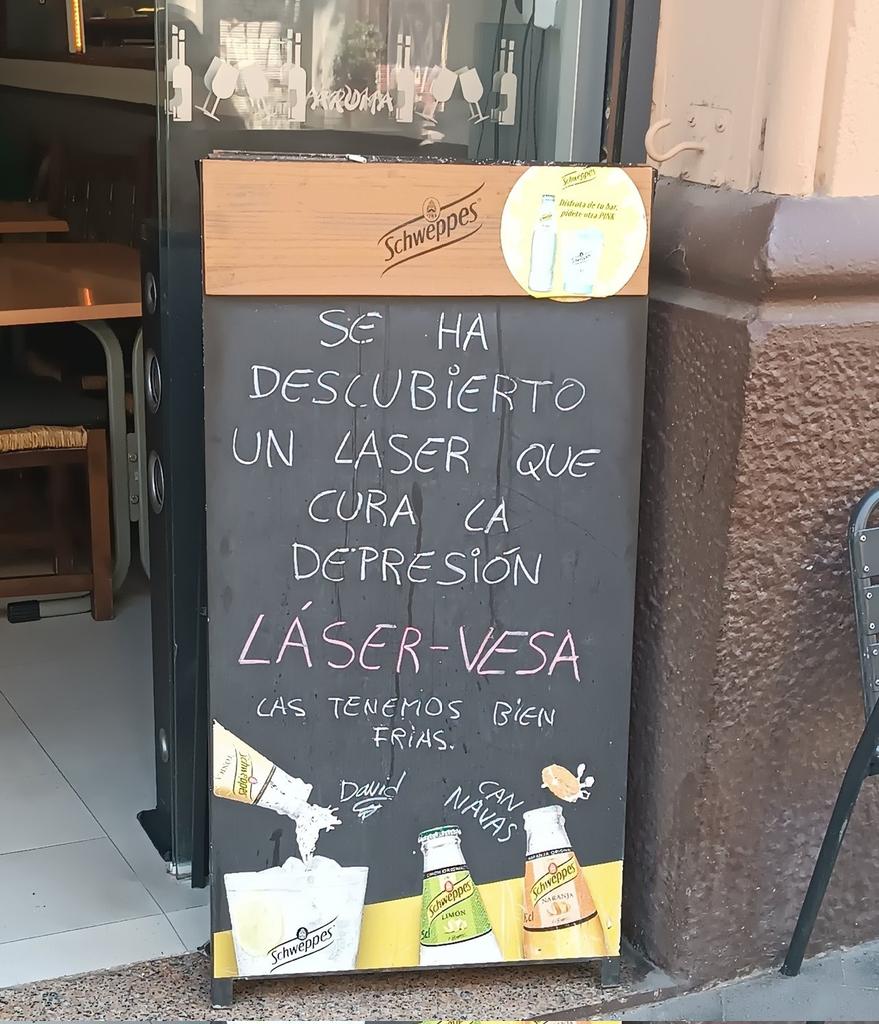 ARROMA
Schweppes
Schweppes
Disfruta de tu bar,
pídete otra PINK
SE HA
DESCUBIERTO
UN LASER QUE
CURA LA
DEPRESIÓN
LÁSER-VESA
LAS TENEMOS BIEN
FRIAS.
David
CAN
NAVAS
Schweppes
TONICA
Schweppes
Schweppes
LIMÓN
Schweppes
NARANJA